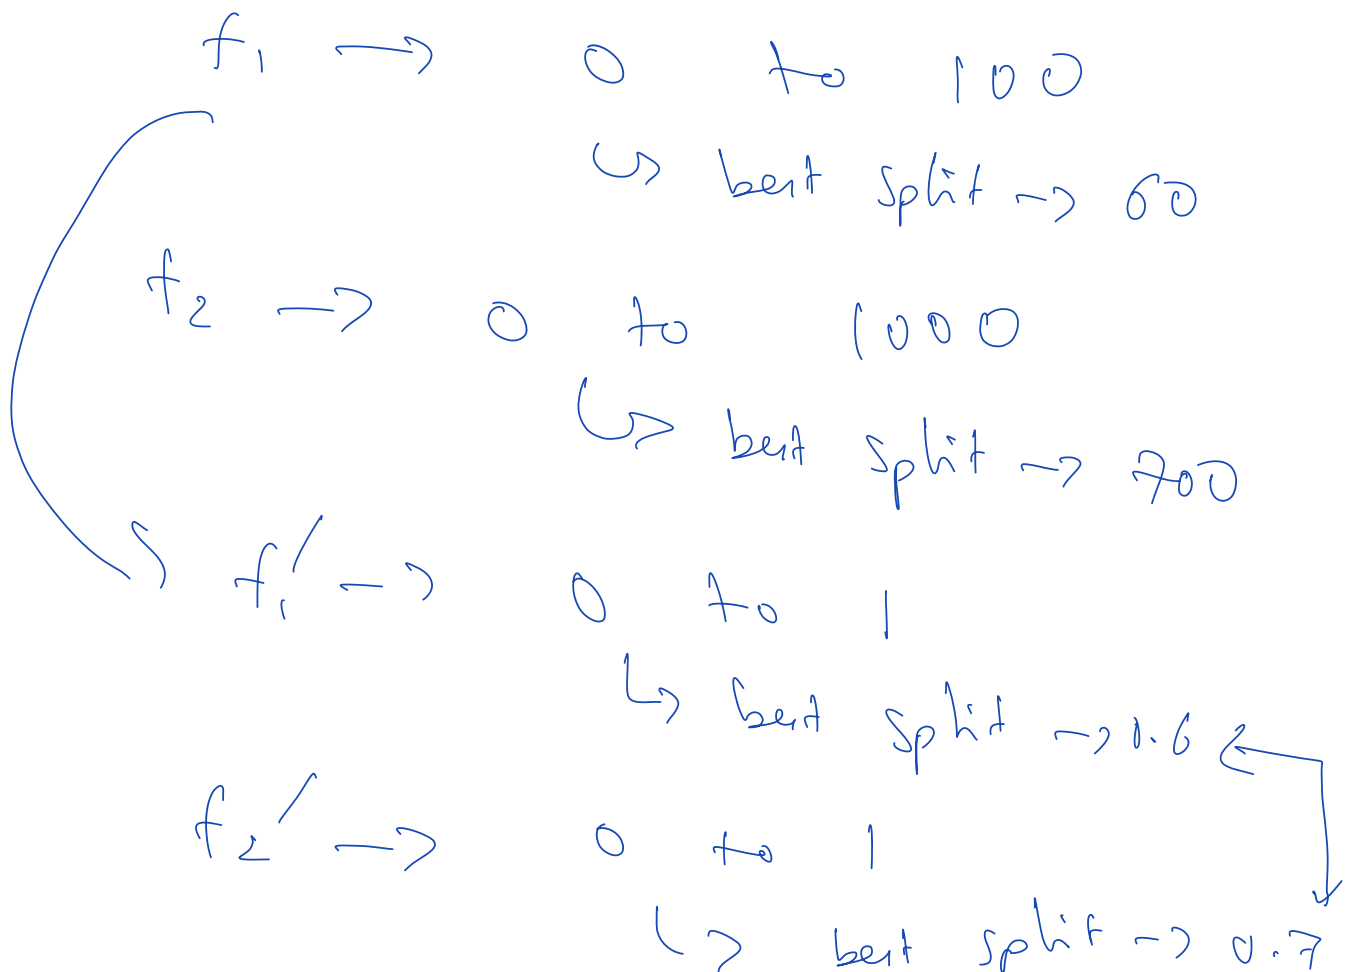 f₁ → 0 to 100
↳ best split → 60
f₂ → 0 to 1000
↳ best split → 700
f₁' → 0 to 1
↳ best split → 0.6
f₂' → 0 to 1
↳ best split → 0.7